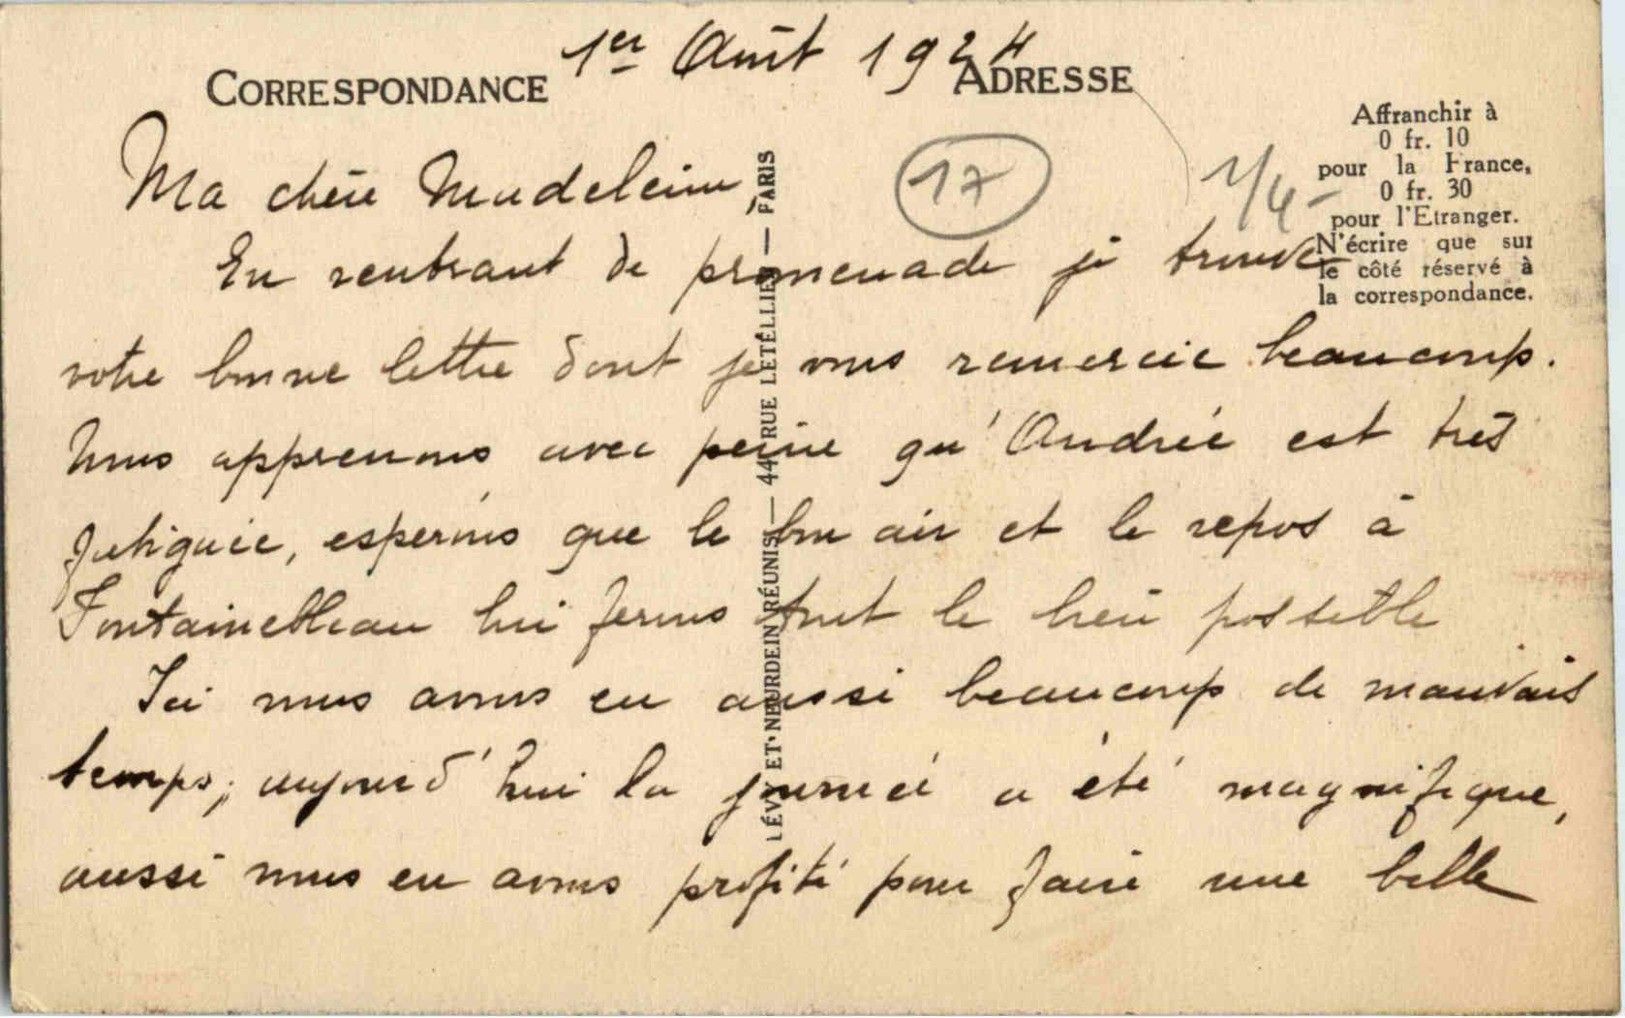 1er Août 1924
CORRESPONDANCE
ADRESSE
Affranchir à
0 fr. 10
pour la France,
0 fr. 30
pour l'Etranger.
N'écrire que sur
le côté réservé à
la correspondance.
17
1/4-
Ma chère Madeleine,
En rentrant de promenade je trouve
votre bonne lettre dont je vous remercie beaucoup.
Nous apprenons avec peine qu'Andrée est très
fatiguée, espérons que le bon air et le repos à
Fontainebleau lui ferons tout le bien possible
Ici nous avons eu aussi beaucoup de mauvais
temps; aujourd'hui la journée a été magnifique,
aussi nous en avons profité pour faire une belle
LÉVY ET NEURDEIN RÉUNIS — 44 RUE LETELLIER — PARIS